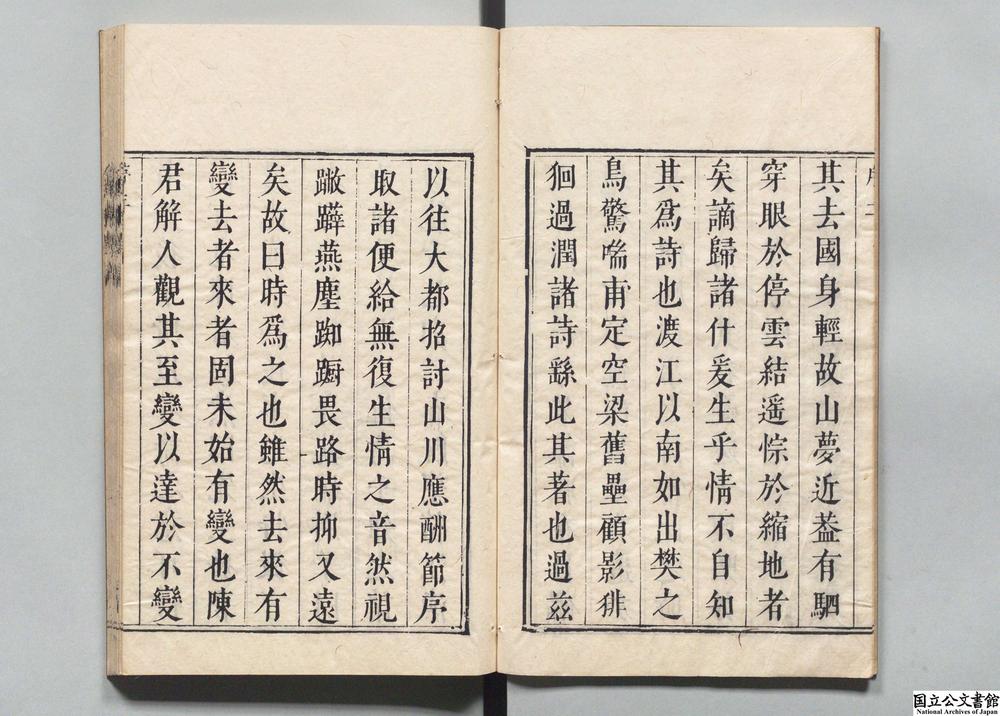 其去國身輕故山夢近葢有駟
穿眼於停雲結遥悰於縮地者
矣謫歸諸什爰生乎情不自知
其爲詩也渡江以南如出樊之
鳥驚喘甫定空梁舊壘顧影徘
徊過潤諸詩繇此其著也過兹
以往大都招討山川應酬節序
取諸便給無復生情之音然視
蹴躃燕塵踟蹰畏路時抑又遠
矣故曰時爲之也雖然去來有
變去者來者固未始有變也陳
君解人觀其至變以達於不變
国立公文書館
National Archives of Japan